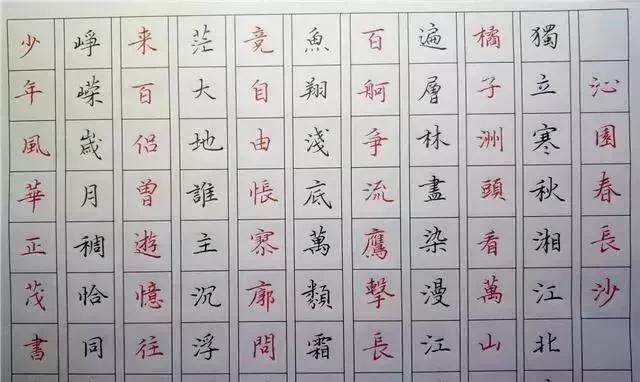 沁園春長沙
獨立寒秋湘江北
橘子洲頭看萬山
遍層林盡染漫江
百舸爭流鷹擊長
魚翔淺底萬類霜
竟自由悵寥廓問
茫大地誰主沉浮
来百侣曾遊憶往
崢嶸嵗月稠恰同
少年風華正茂書